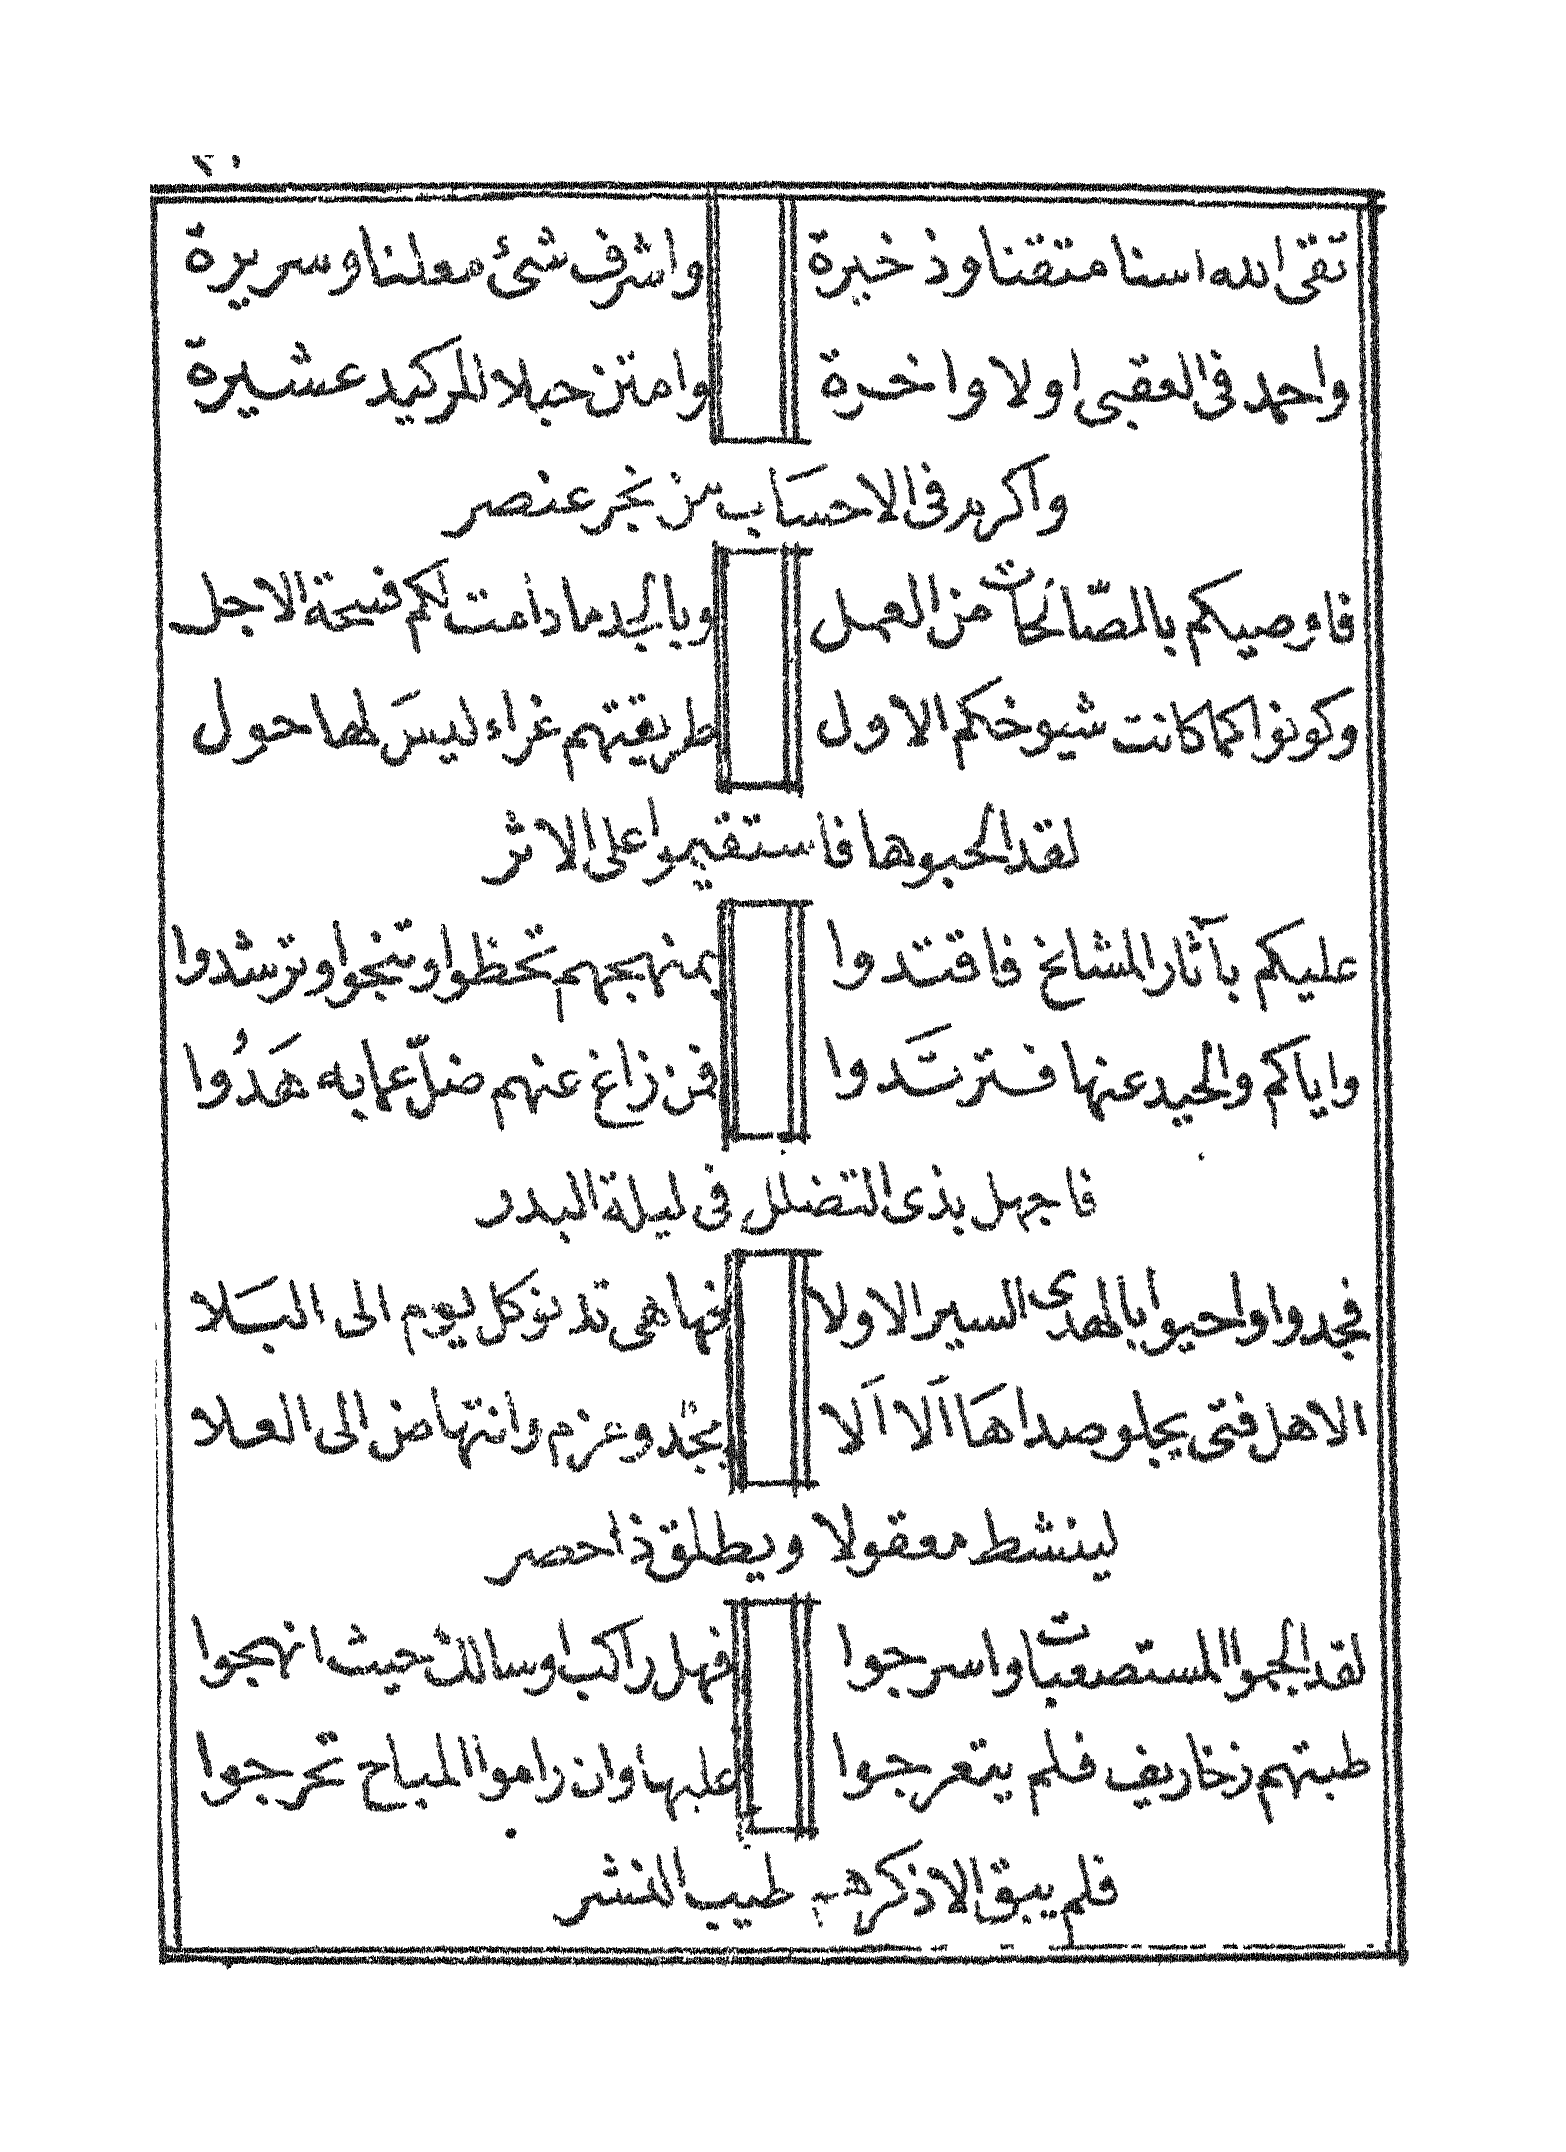 تقى الله اسنا متقنا وذخيرة واشرف شئ معلنا وسريرة
واحمد فى العقبى اولا واخرة وامتن حبلا للمركيد عشيرة
واكرم فى الاحساب من نجر عنصر
فاوصيكم بالصّالحات من العمل وبالجد ما دامت لكم فسيحة الاجل
وكونوا كما كانت شيوخكم الاول طريقتهم غراء ليسَ لها حول
لقد الحبوها فاستقيموا على الاثر
عليكم بآثار المشائخ فاقتدوا بمنهجهم تحظوا وتنجوا وترشدوا
واياكم والحيد عنها فترتَدوا فمن زاغ عنهم ضلّ عما به هَدُوا
فاجهل بذى التضلل فى ليلة البدر
فجدوا واحيوا بالهدى السير الاولا فها هى قد توكل يوم الى البَلا
الاهل فتى يجلو صداهَا اَلا اَلا بجد وعزم وانتهاض الى العلا
لينشط معقولا ويطلق ذا حصر
لقد الجموا المستصعبات واسرجوا فهل راكب او سالك حيث انهجوا
طبتهم زخاريف فلم يتعرجوا عليها وان راموا المباح تحرجوا
فلم يبق الا ذكرهم طيب النشر